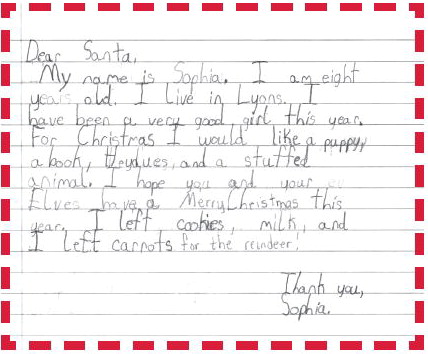 Dear Santa,
My name is Sophia. I am eight
years old. I live in Lyons. I
have been a very good girl this year.
For Christmas I would like a puppy,
a book, and a stuffed
animal. I hope you and your
Elves have a Merry Christmas this
year. I left cookies, milk, and
I left carrots for the reindeer!
Thank you,
Sophia.